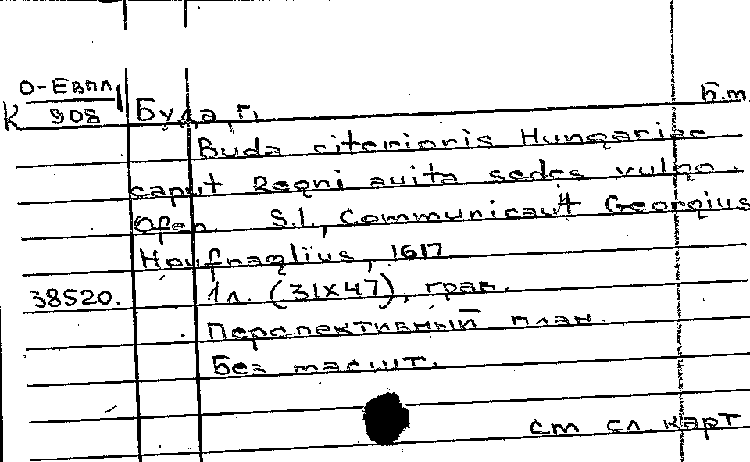 О-Евпл1 Б.м
К 908 Буда, г.
Buda citerioris Hungariae
caput Regni avita sedes vulgo.
Ofen S.l., Communicavit Georgius
Houfnaglius, 1617
38520. 1л. (31x47), грав.
Перспективный план.
Без масшт.
см сл. карт